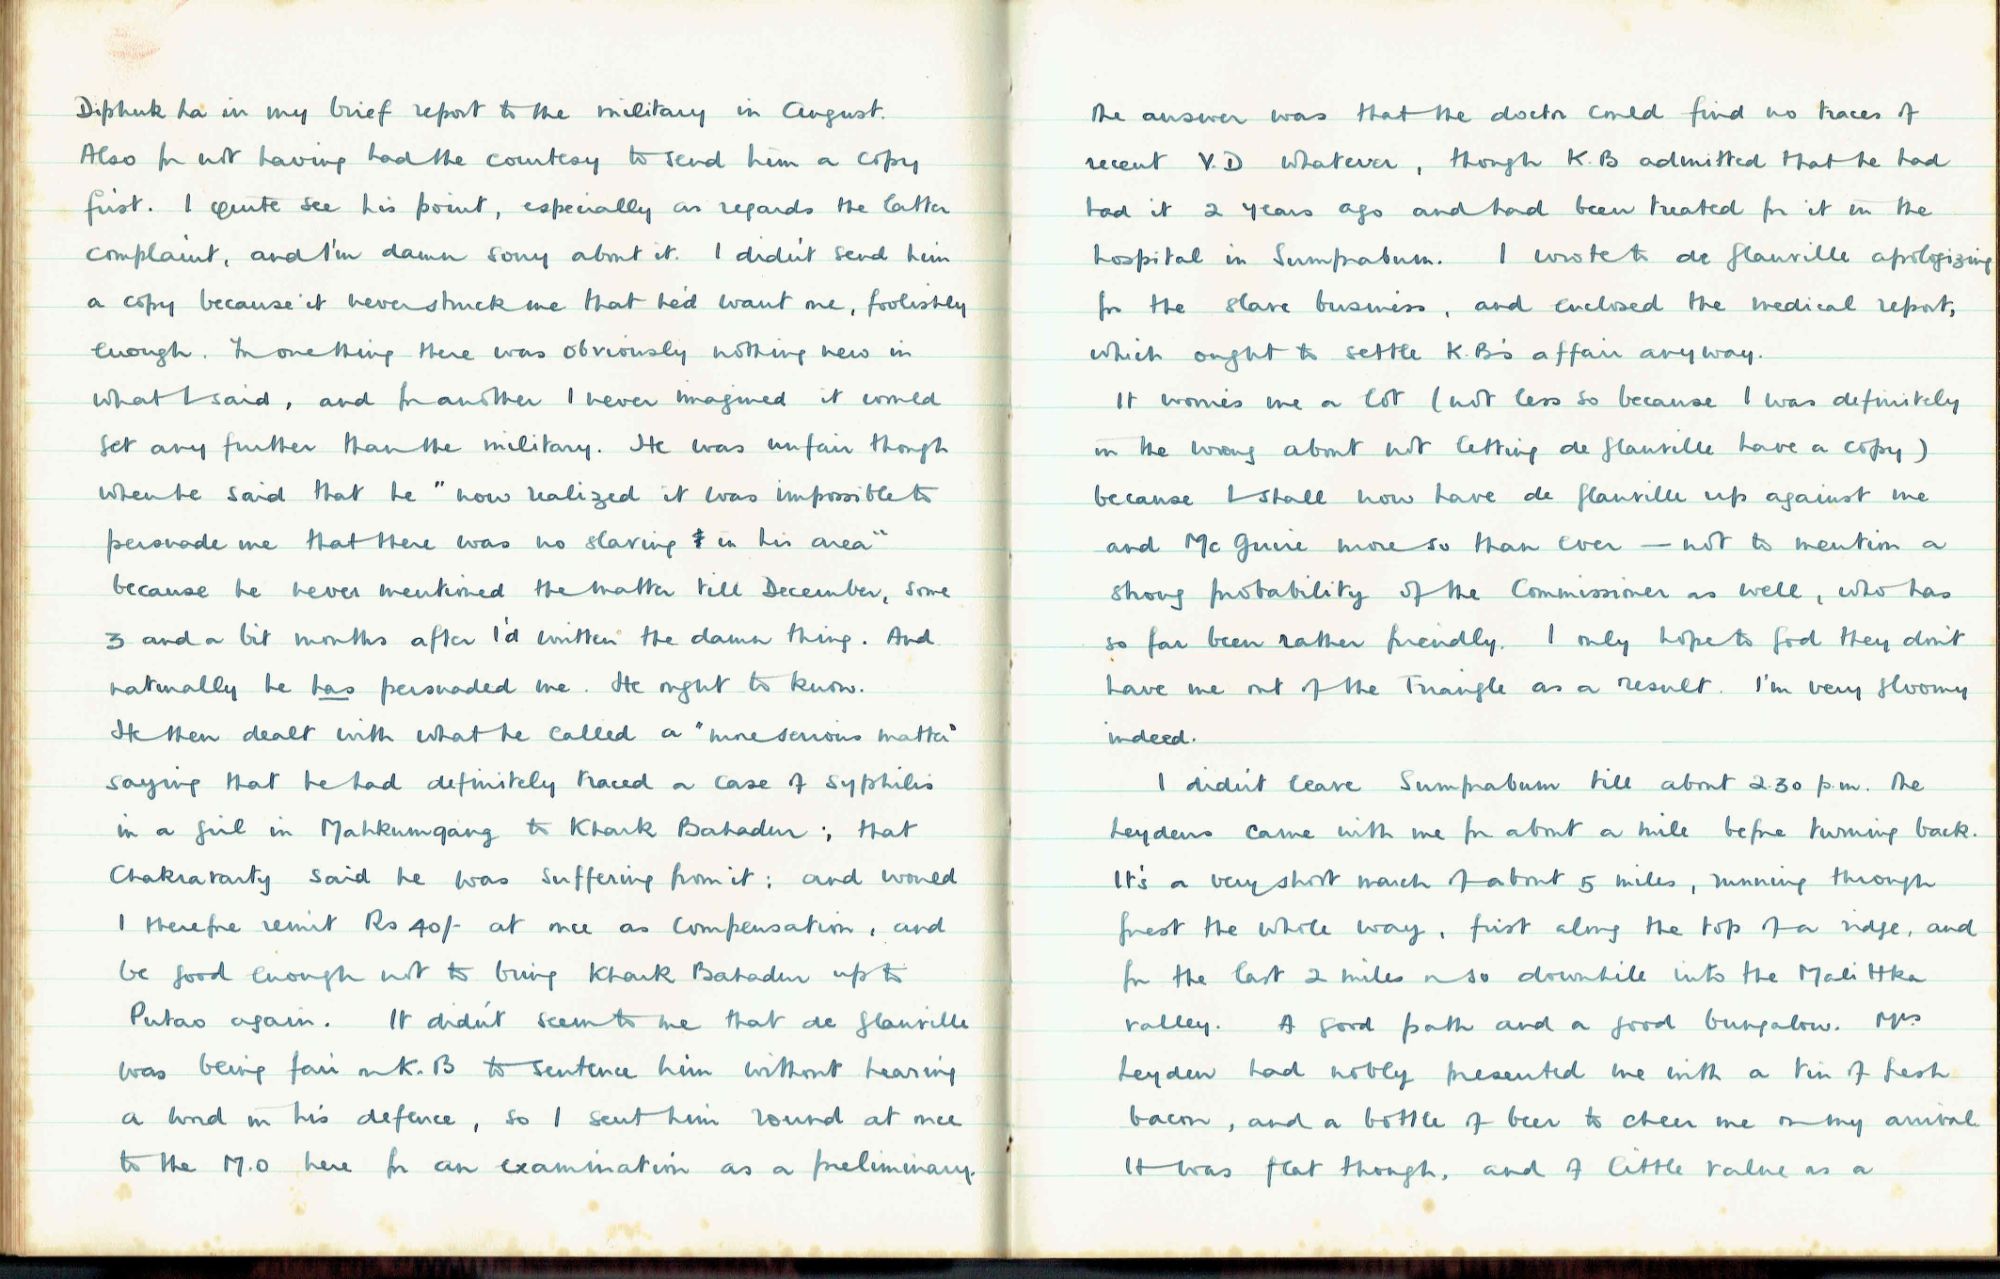 Diphuk La in my brief report to the military in August.
Also for not having had the courtesy to send him a copy
first. I quite see his point, especially as regards the latter
complaint, and I'm damn sorry about it. I didn't send him
a copy because it never struck me that he'd want one, foolishly
enough. For one thing there was obviously nothing new in
what I said, and for another I never imagined it would
get any further than the military. He was unfair though
when he said that he "now realized it was impossible to
persuade me that there was no slaving in his area"
because he never mentioned the matter till December, some
3 and a bit months after I'd written the damn thing. And
naturally he has persuaded me. He ought to know.
He then dealt with what he called a "more serious matter"
saying that he had definitely traced a case of syphilis
in a girl in Mahkumgang to Khark Bahadur ; that
Chakravarty said he was suffering from it ; and would
I therefore remit Rs 40/- at once as compensation, and
be good enough not to bring Khark Bahadur up to
Putao again. It didn't seem to me that de Glanville
was being fair on K.B to sentence him without hearing
a word in his defence, so I sent him round at once
to the M.O here for an examination as a preliminary.
The answer was that the doctor could find no traces of
recent V.D whatever, though K.B admitted that he had
had it 2 years ago and had been treated for it in the
hospital in Sumprabum. I wrote to de Glanville apologizing
for the slave business, and enclosed the medical report,
which ought to settle K.B's affair anyway.
It worries me a lot (not less so because I was definitely
in the wrong about not letting de Glanville have a copy)
because I shall now have de Glanville up against me
and McGuire more so than ever — not to mention a
strong probability of the Commissioner as well, who has
so far been rather friendly. I only hope to God they don't
have me out of the Triangle as a result. I'm very gloomy
indeed.
I didn't leave Sumprabum till about 2.30 p.m. The
Leydens came with me for about a mile before turning back.
It's a very short march of about 5 miles, running through
forest the whole way, first along the top of a ridge, and
for the last 2 miles or so downhill into the Mali Hka
valley. A good path and a good bungalow. Mrs
Leyden had nobly presented me with a tin of fresh
bacon, and a bottle of beer to cheer me on my arrival.
It was flat though, and of little value as a